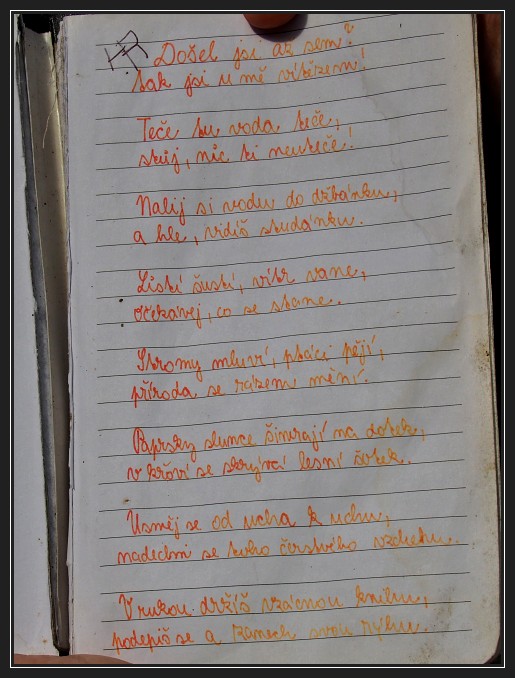 Došel jsi až sem?
Tak jsi u mě vítězem!
Teče tu voda teče,
stůj, nic ti neuteče!
Nalij si vodu do džbánku,
a hle, vidíš studánku.
Listí šustí, vítr vane,
očekávej, co se stane.
Stromy mluví, ptáci pějí,
příroda se rázem mění.
Paprsky slunce šimrají na dotek,
v křoví se skrývá lesní
Usměj se od ucha k uchu,
nadechni se toho čerstvého vzduchu.
V rukou držíš vzácnou knihu,
podepiš se a zanech svou rýhu.